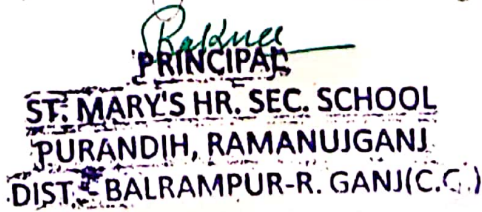 PRINCIPAL
ST. MARY'S HR. SEC. SCHOOL
PURANDIH, RAMANUJGANJ
DIST.- BALRAMPUR-R. GANJ(C.G.)